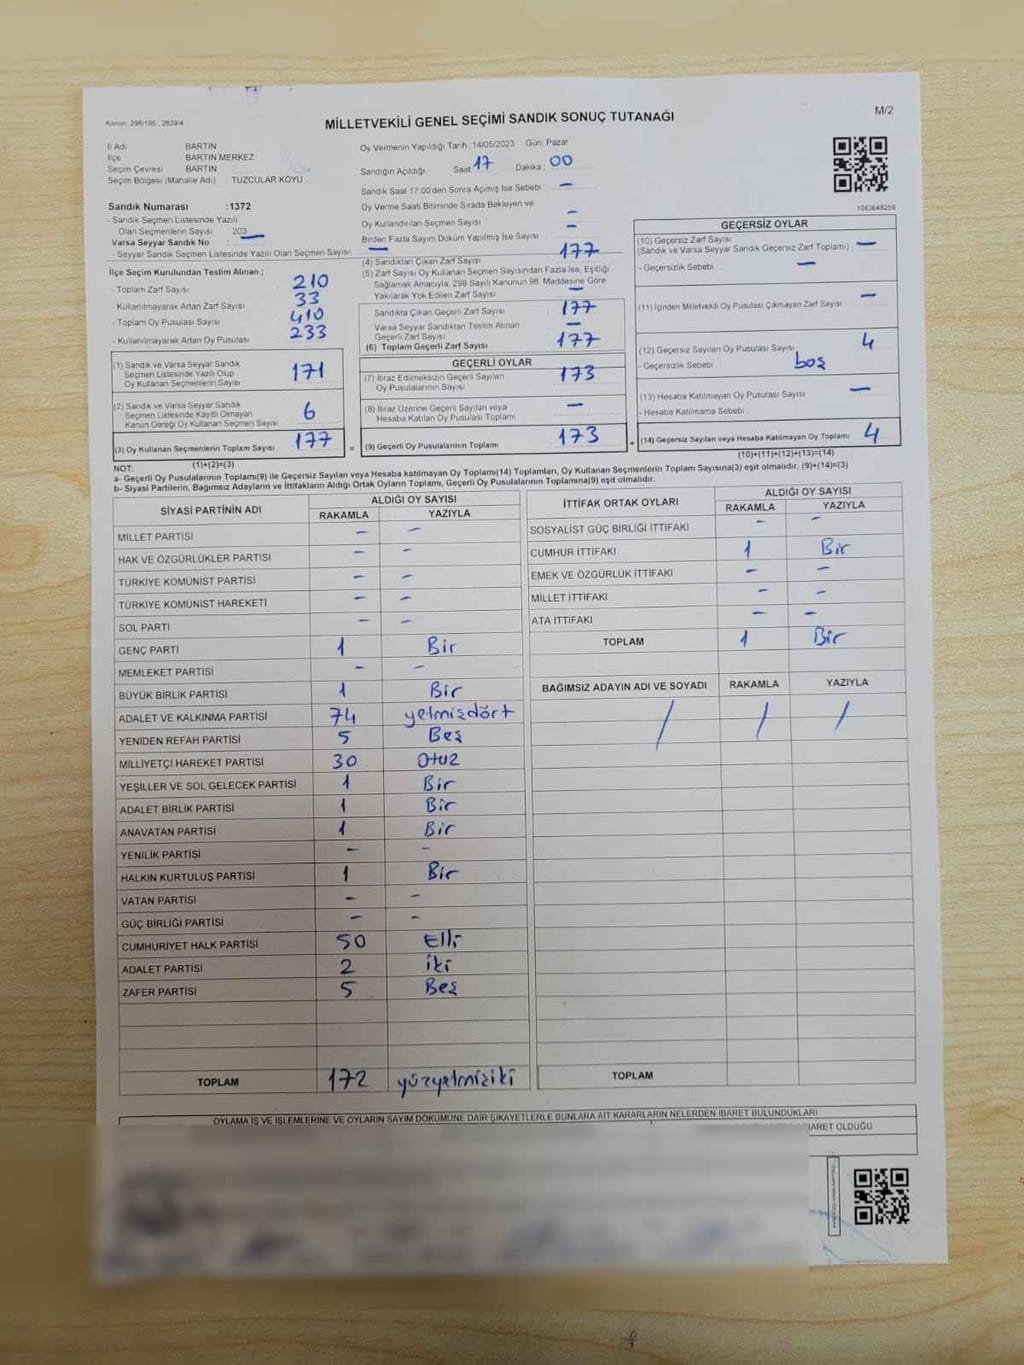 Kanun: 298/105 , 2839/4
MİLLETVEKİLİ GENEL SEÇİMİ SANDIK SONUÇ TUTANAĞI
M/2
İl Adı BARTIN
İlçe BARTIN MERKEZ
Seçim Çevresi BARTIN
Seçim Bölgesi (Mahalle Adı) : TUZCULAR KÖYÜ
Sandık Numarası :1372
- Sandık Seçmen Listesinde Yazılı
Olan Seçmenlerin Sayısı 203
Varsa Seyyar Sandık No : —
- Seyyar Sandık Seçmen Listesinde Yazılı Olan Seçmen Sayısı: —
Oy Vermenin Yapıldığı Tarih :14/05/2023 Gün: Pazar
Sandığın Açıldığı Saat: 17 Dakika: 00
Sandık Saat 17:00'den Sonra Açımış İse Sebebi : —
Oy Verme Saati Bitiminde Sırada Bekleyen ve
Oy Kullandırılan Seçmen Sayısı —
Birden Fazla Sayım Döküm Yapılmış İse Sayısı —
İlçe Seçim Kurulundan Teslim Alınan ;
- Toplam Zarf Sayısı 210
- Kullanılmayarak Artan Zarf Sayısı 33
- Toplam Oy Pusulası Sayısı 410
- Kullanılmayarak Artan Oy Pusulası 233
(1) Sandık ve Varsa Seyyar Sandık
Seçmen Listesinde Yazılı Olup
Oy Kullanan Seçmenlerin Sayısı 171
(2) Sandık ve Varsa Seyyar Sandık
Seçmen Listesinde Kayıtlı Olmayan
Kanun Gereği Oy Kullanan Seçmen Sayısı 6
(3) Oy Kullanan Seçmenlerin Toplam Sayısı 177
(1)+(2)=(3)
(4) Sandıktan Çıkan Zarf Sayısı 177
(5) Zarf Sayısı Oy Kullanan Seçmen Sayısından Fazla İse, Eşitliği
Sağlamak Amacıyla, 298 Sayılı Kanunun 98. Maddesine Göre
Yakılarak Yok Edilen Zarf Sayısı —
Sandıkta Çıkan Geçerli Zarf Sayısı 177
Varsa Seyyar Sandıktan Teslim Alınan
Geçerli Zarf Sayısı —
(6) Toplam Geçerli Zarf Sayısı 177
GEÇERLİ OYLAR
(7) İtiraz Edilmeksizin Geçerli Sayılan
Oy Pusulalarının Sayısı 173
(8) İtiraz Üzerine Geçerli Sayılan veya
Hesaba Katılan Oy Pusulası Toplamı —
= (9) Geçerli Oy Pusulalarının Toplamı 173
GEÇERSİZ OYLAR
(10) Geçersiz Zarf Sayısı
(Sandık ve Varsa Seyyar Sandık Geçersiz Zarf Toplamı) : —
- Geçersizlik Sebebi : —
(11) İçinden Milletvekili Oy Pusulası Çıkmayan Zarf Sayısı —
(12) Geçersiz Sayılan Oy Pusulası Sayısı 4
- Geçersizlik Sebebi : boş
(13) Hesaba Katılmayan Oy Pusulası Sayısı —
- Hesaba Katılmama Sebebi :
+ (14) Geçersiz Sayılan veya Hesaba Katılmayan Oy Toplamı 4
(10)+(11)+(12)+(13)=(14)
NOT:
a- Geçerli Oy Pusulalarının Toplamı(9) ile Geçersiz Sayılan veya Hesaba katılmayan Oy Toplamı(14) Toplamları, Oy Kullanan Seçmenlerin Toplam Sayısına(3) eşit olmalıdır. (9)+(14)=(3)
b- Siyasi Partilerin, Bağımsız Adayların ve İttifakların Aldığı Ortak Oyların Toplamı, Geçerli Oy Pusulalarının Toplamına(9) eşit olmalıdır.
SİYASİ PARTİNİN ADI ALDIĞI OY SAYISI
RAKAMLA YAZIYLA
MİLLET PARTİSİ — —
HAK VE ÖZGÜRLÜKLER PARTİSİ — —
TÜRKİYE KOMÜNİST PARTİSİ — —
TÜRKİYE KOMÜNİST HAREKETİ — —
SOL PARTİ — —
GENÇ PARTİ 1 Bir
MEMLEKET PARTİSİ — —
BÜYÜK BİRLİK PARTİSİ 1 Bir
ADALET VE KALKINMA PARTİSİ 74 yetmişdört
YENİDEN REFAH PARTİSİ 5 Beş
MİLLİYETÇİ HAREKET PARTİSİ 30 Otuz
YEŞİLLER VE SOL GELECEK PARTİSİ 1 Bir
ADALET BİRLİK PARTİSİ 1 Bir
ANAVATAN PARTİSİ 1 Bir
YENİLİK PARTİSİ — —
HALKIN KURTULUŞ PARTİSİ 1 Bir
VATAN PARTİSİ — —
GÜÇ BİRLİĞİ PARTİSİ — —
CUMHURİYET HALK PARTİSİ 50 Elli
ADALET PARTİSİ 2 iki
ZAFER PARTİSİ 5 Beş
TOPLAM 172 yüzyetmişiki
İTTİFAK ORTAK OYLARI ALDIĞI OY SAYISI
RAKAMLA YAZIYLA
SOSYALİST GÜÇ BİRLİĞİ İTTİFAKI — —
CUMHUR İTTİFAKI 1 Bir
EMEK VE ÖZGÜRLÜK İTTİFAKI — —
MİLLET İTTİFAKI — —
ATA İTTİFAKI — —
TOPLAM 1 Bir
BAĞIMSIZ ADAYIN ADI VE SOYADI RAKAMLA YAZIYLA
/ / /
TOPLAM
OYLAMA İŞ VE İŞLEMLERİNE VE OYLARIN SAYIM DÖKÜMÜNE DAİR ŞİKAYETLERLE BUNLARA AİT KARARLARIN NELERDEN İBARET BULUNDUKLARI
İBARET OLDUĞU